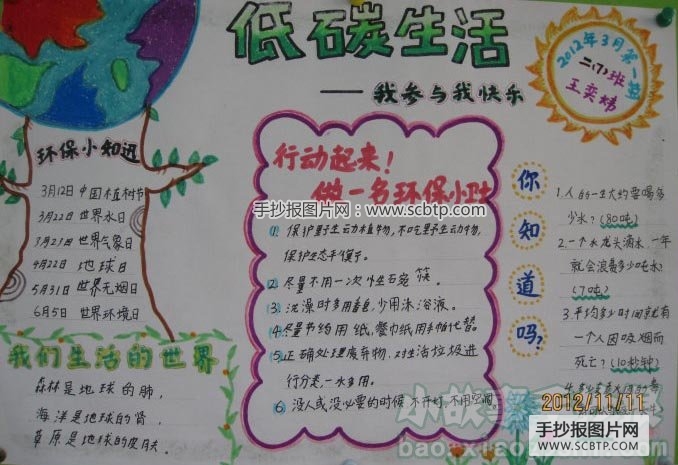 低碳生活
——我参与我快乐
2012年3月第一期
二(7)班
王奕炜
环保小知迅
3月12日 中国植树节
3月22日 世界水日
3月23日 世界气象日
4月22日 地球日
5月31日 世界无烟日
6月5日 世界环境日
我们生活的世界
森林是地球的肺,
海洋是地球的肾,
草原是地球的皮肤。
行动起来!
做一名环保小卫士
手抄报图片网:www.scbtp.com
1、保护野生动植物,不吃野生动物,
保护生态平衡。
2、尽量不用一次性碗筷。
3、洗澡时多用香皂,少用沐浴液。
4、尽量节约用纸,餐巾纸用手帕代替。
5、正确处理废弃物,对生活垃圾进
行分类,一水多用。
6、没人或没必要的时候,不开灯,不用空调
你知道吗?
1.人的一生大约要喝多
少水?(80吨)
2.一个水龙头滴水,一年
就会浪费多少吨水?
(7吨)
3.平均多少时间就有
一个人因吸烟而
死亡?(10秒钟)
2012/11/11
手抄报图片网
www.scbtp.com